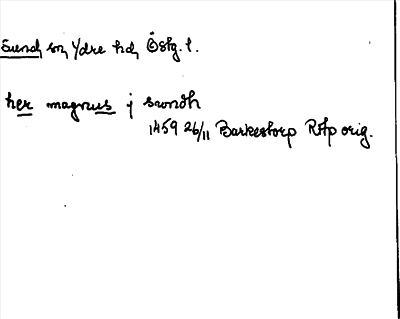 Sund sn, Ydre hd, Östg. l.
her magnus j swndh
1459 26/11 Barkestorp RAp orig.